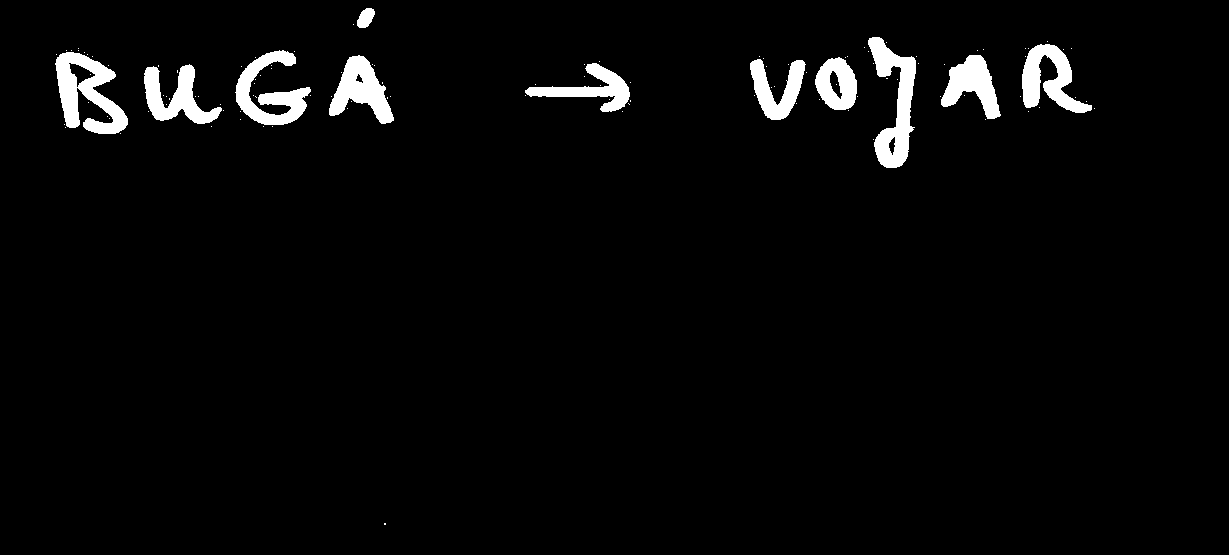 BUGÁ → VOJAR